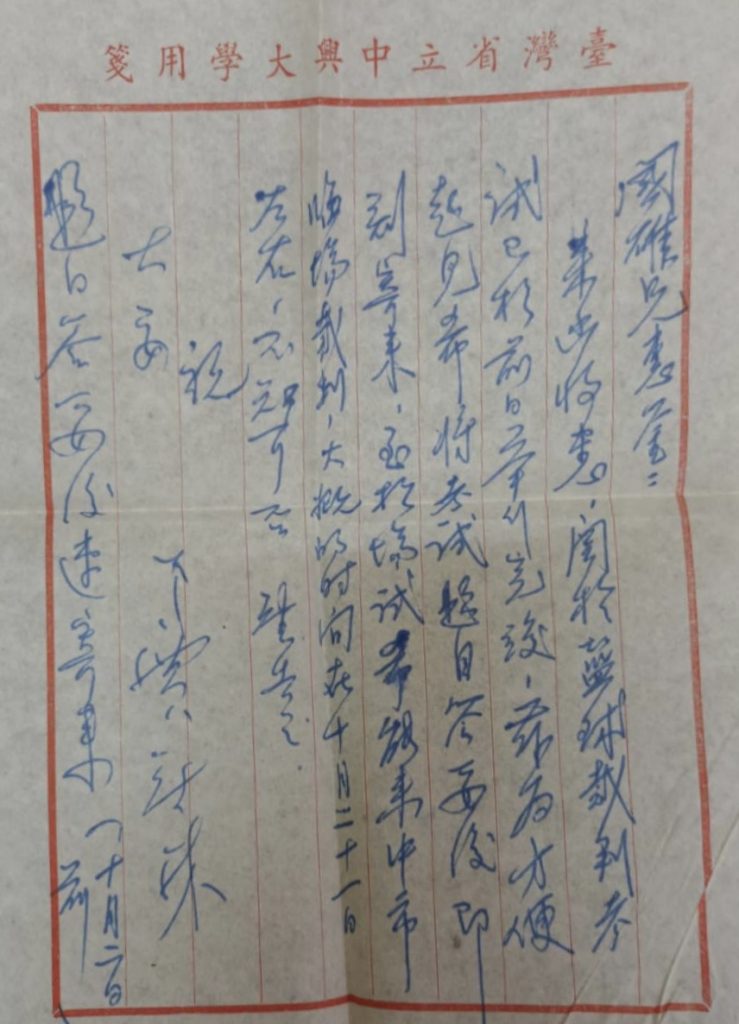 臺灣省立中興大學用箋
國雄兄惠鑒：
來函收悉，關於籃球裁判考
試已於前日舉行完竣，茲為方便
起見希將考試題目答妥後即
刻寄來，至於場試希能來中市
臨場裁判，大概的時間在十月二十一日
左右，不知可否 請告之.
祝
大安
題目答妥後速寄來（十月二日
前